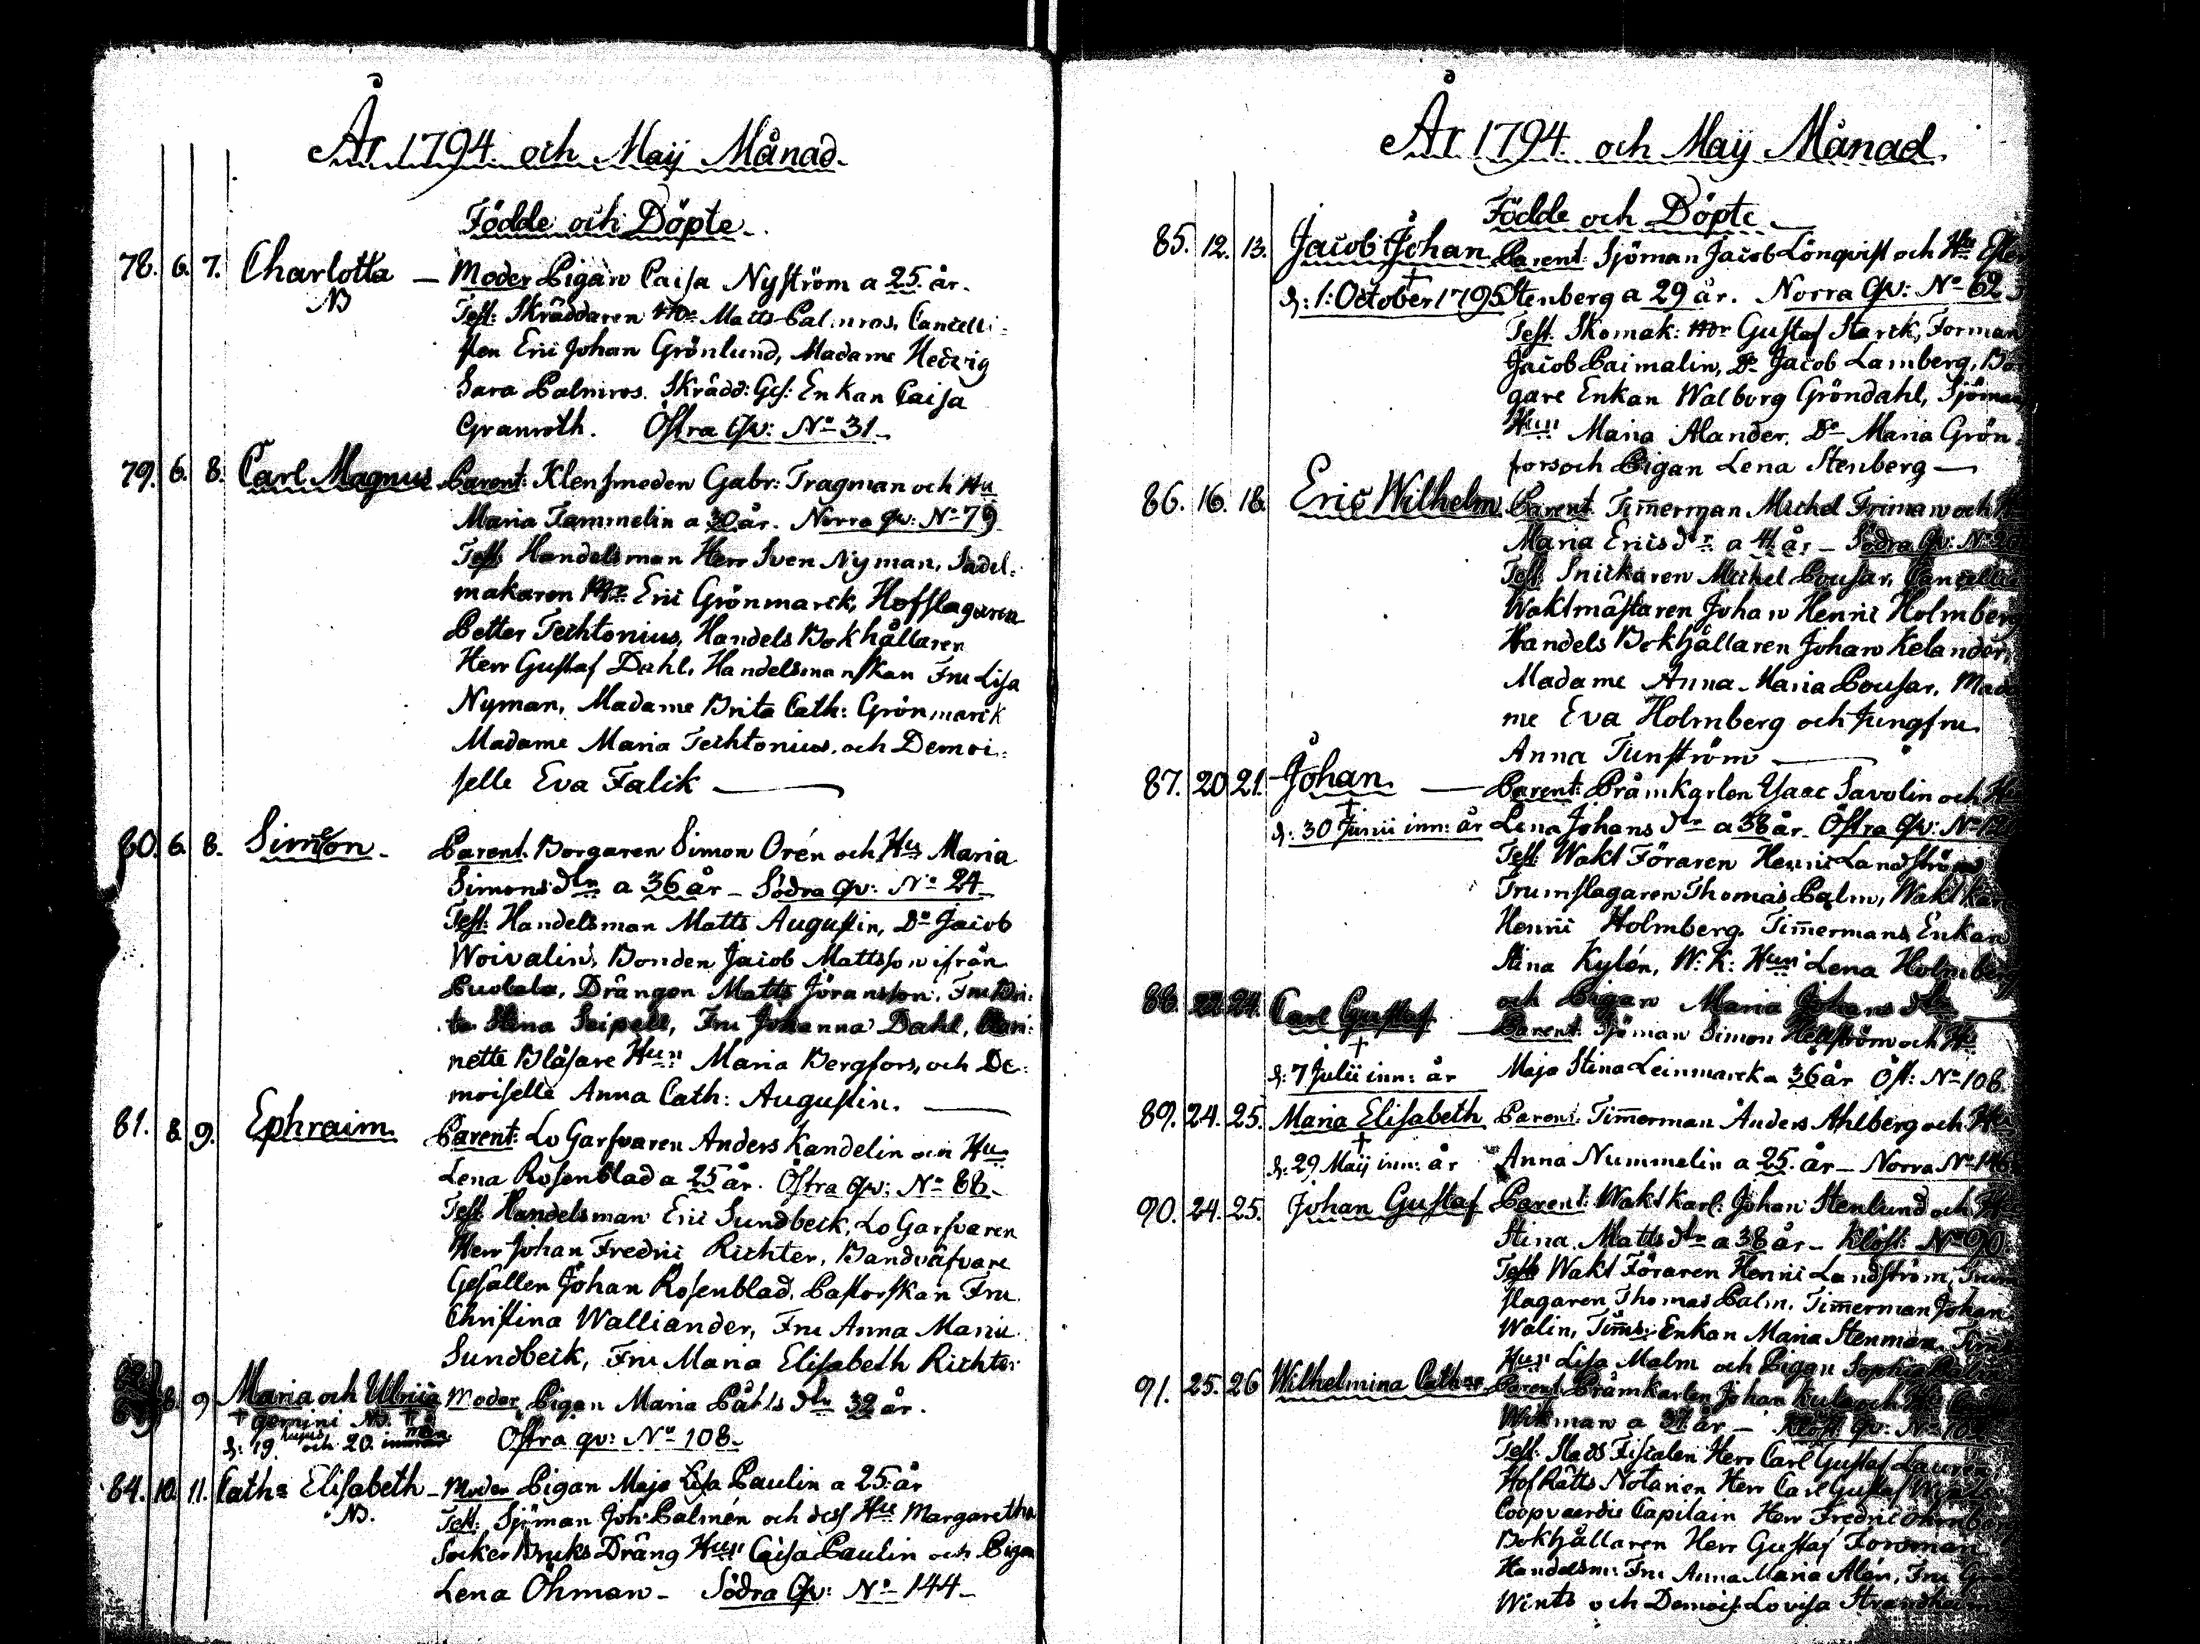 År 1794. och Maij Månad.
Födde och Döpte.
78. 6. 7. Charlotta — Moder Pigan Caisa Nyström a 25. år.
NB
Test: Skräddaren Matts Palmros, Cancelli-
sten Eric Johan Grönlund, Madame Hedvig
Sara Palmros. Skrädd: Ges: Enkan Caisa
Granroth. Östra Qv: No 31.
79. 6. 8. Carl Magnus Parent: Klensmeden Gabr: Tragman och Hu
Maria Tammelin a 30 år. Norra Qv: No 79
Test: Handelsman Herr Sven Nyman, Sadel-
makaren Mr Eric Grönmarck, Hofslagaren
Petter Techtonius, Handels Bokhållaren
Herr Gustaf Dahl, Handelsmanskan Fru Lisa
Nyman, Madame Brita Cath: Grönmarck
Madame Maria Techtonius, och Demoi-
selle Eva Falck —
80. 6. 8. Simeon. Parent. Borgaren Simon Orén och Hu Maria
Simonsdtr a 36 år – Södra Qv: No 24
Test: Handelsman Matts Augustin, Do Jacob
Woivalin, Bonden Jacob Mattsson ifrån
Drängen Matts Jöransson, Fru Bri-
ta Stina Seipell, Fru Johanna Dahl, Clari-
nette Blåsare Hun Maria Bergfors, och De-
moiselle Anna Cath: Augustin. —
81. 8. 9. Ephraim. Parent: Lo Garfvaren Anders Kandelin och Hu
Lena Rosenblad a 25 år. Östra Qv: No 88.
Test: Handelsman Eric Sundbeck, Lo Garfvaren
Herr Johan Fredric Richter, Bandväfvare
Gesällen Johan Rosenblad, Pastorskan Fru
Christina Walliander, Fru Anna Maria
Sundbeck, Fru Maria Elisabeth Richter
8. 9 Maria och Ulrica Moder Pigan Maria Påhlsdtr 32 år.
† gemini NB. †
d: 19 hujus och 20. Östra qv: No 108.
84. 10. 11. Cath: Elisabeth – Moder Pigan Maja Lisa Paulin a 25 år
NB.
Test: Sjöman Joh: Palmén och dess Hu Margaretha
Socker Bruks Dräng Hun Caisa Paulin och Pigan
Lena Öhman – Södra Qv: No 144 –
År 1794. och Maij Månad.
Födde och Döpte.
85. 12. 13. Jacob Johan Parent: Sjöman Jacob Lönqvist och Hu
†
d: 1: October 1795 Stenberg a 29 år. Norra Qv: No 62
Test: Skomak: Mr Gustaf Starck, Forman
Jacob Paimalin, Do Jacob Lamberg, Bor-
gare Enkan Walborg Gröndahl, Sjöman
Hun Maria Alander, Do Maria Grön-
fors och Pigan Lena Stenberg —
86. 16. 18. Eric Wilhelm Parent Timmerman Michel Friman och
Maria Ericsdtr a 41 år – Södra Qv: No
Test: Snickaren Michel Pousar, Cancellie
Waktmästaren Johan Henric Holmberg
Handels Bokhållaren Johan Kelander,
Madame Anna Maria Pousar, Mada-
me Eva Holmberg och Jungfru
Anna Tunström —
87. 20 21. Johan. — Parent: Pråmkarlen Ysaac Savolin och Hu
†
d: 30 Junii inn: år Lena Johansdtr a 38 år. Östra Qv: No
Test: Wakt Föraren Henric Landström
Trumslagaren Thomas Palm, Wakt karl
Henric Holmberg. Timmermans Enkan
Stina Kylén, W: K: Hun Lena Holmberg
och Pigan Maria Johansdtr —
88. 22 24. Carl Gustaf — Parent: Sjöman Simon Hellström och Hu
†
d: 7 Julii inn: år Maja Stina Leinmarck a 36 år Öst: No 108.
89. 24. 25. Maria Elisabeth Parent: Timmerman Anders Ahlberg och Hu
†
d: 29 Maij inn: år Anna Nummelin a 25. år – Norra No
90. 24. 25. Johan Gustaf Parent: Waktkarl: Johan Stenlund och Hu
Stina Mattsdtr a 38 år – Klöst: No 90.
Test: Wakt Föraren Henric Landström, Trum
slagaren Thomas Palm, Timmerman Johan
Walin, Timms: Enkan Maria Stenman,
Hun Lisa Malm och Pigan Sophia
91. 25. 26 Wilhelmina Cathna Parent: Pråmkarlen Johan Kula och Hu
Wikman a 37 år – Klöst: Qv: No
Test: Stads Fiscalen Herr Carl Gustaf Lauren
Hof Rätts Notarien Herr Carl Gustaf
Coopvaerdie Capitain Herr Fredric
Bokhållaren Herr Gustaf Forsman
Handelsm: Fru Anna Maria Alén, Fru
Wints och Demois: Lovisa